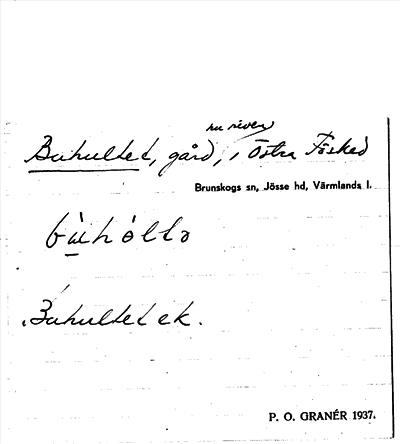 nu riven
Buhultet, gård, i Östra Fösked
Brunskogs sn, Jösse hd, Värmlands l.
bùhólta
Buhultet ek.
P. O. GRANÉR 1937.